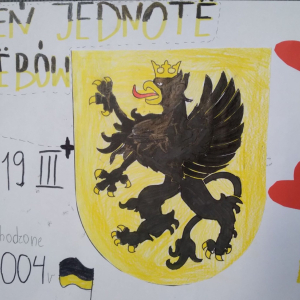 EŃ JEDNOTË
ËBÓW
19 III
hodzone
004 r